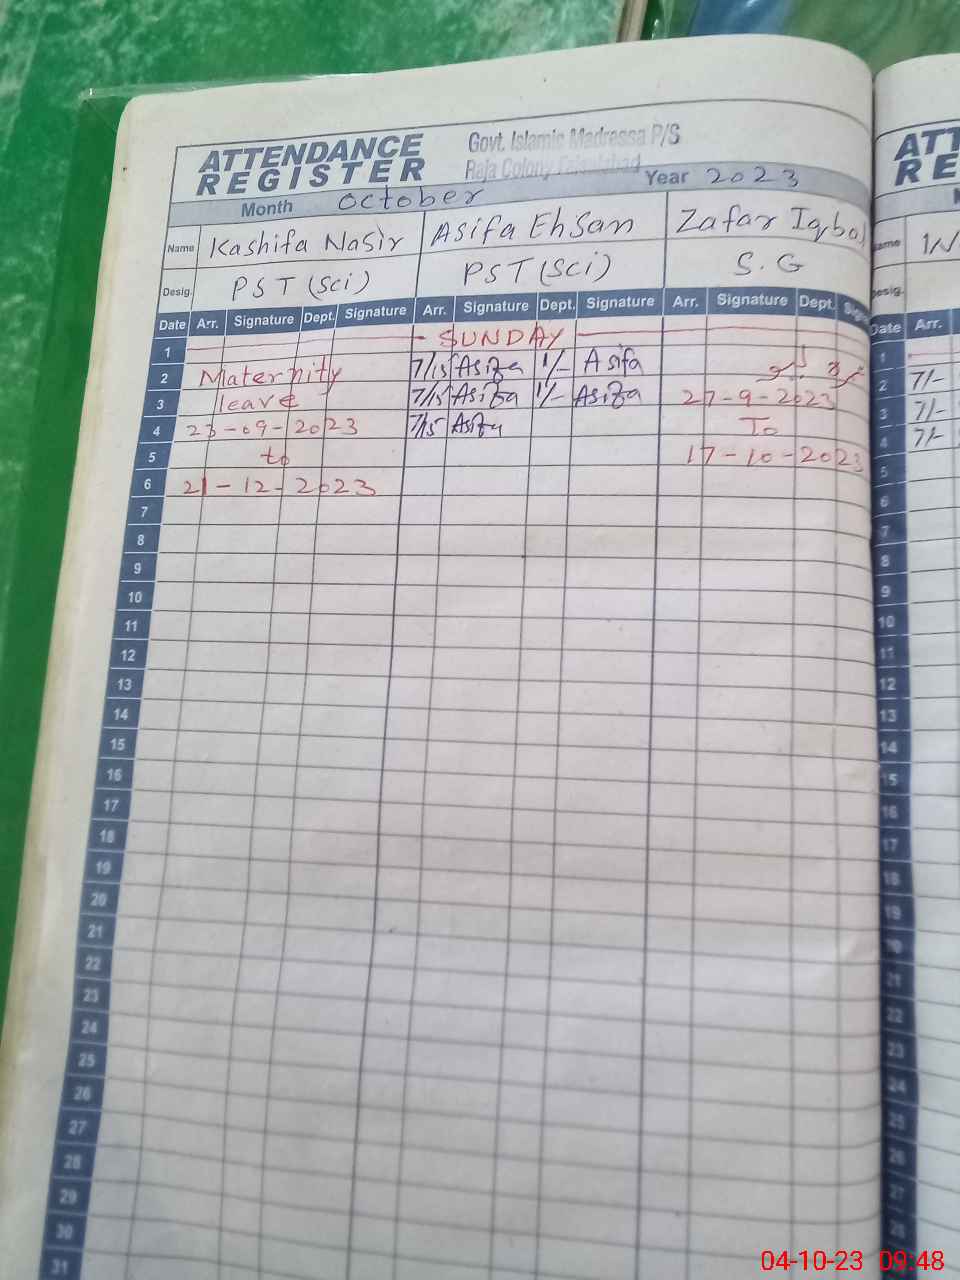 ATTENDANCE REGISTER
Govt. Islamic Madressa P/S
Raja Colony Faisalabad
Month October Year 2023
Name Kashifa Nasir Asifa Ehsan Zafar Iqbal
Desig. PST (Sci) PST (Sci) S.G
Date Arr. Signature Dept. Signature Arr. Signature Dept. Signature Arr. Signature Dept.
1 SUNDAY
2 Maternity 7/15 Asifa 1/- Asifa
3 leave 7/15 Asifa 1/- Asifa 27-9-2023
4 23-09-2023 7/15 Asifa To
5 to 17-10-2023
6 21-12-2023
7
8
9
10
11
12
13
14
15
16
17
18
19
20
21
22
23
24
25
26
27
28
29
30
31
ATT
RE
Date Arr.
1
2 7/-
3 7/-
4 7/-
5
6
7
8
9
10
11
12
13
14
15
16
17
18
19
20
21
22
23
24
25
26
27
28
04-10-23 09:48